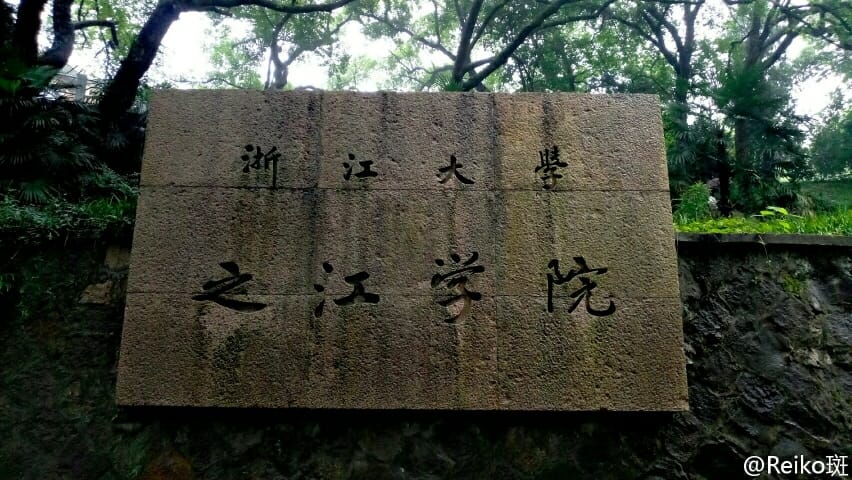 浙江大學
之江学院
@Reiko斑